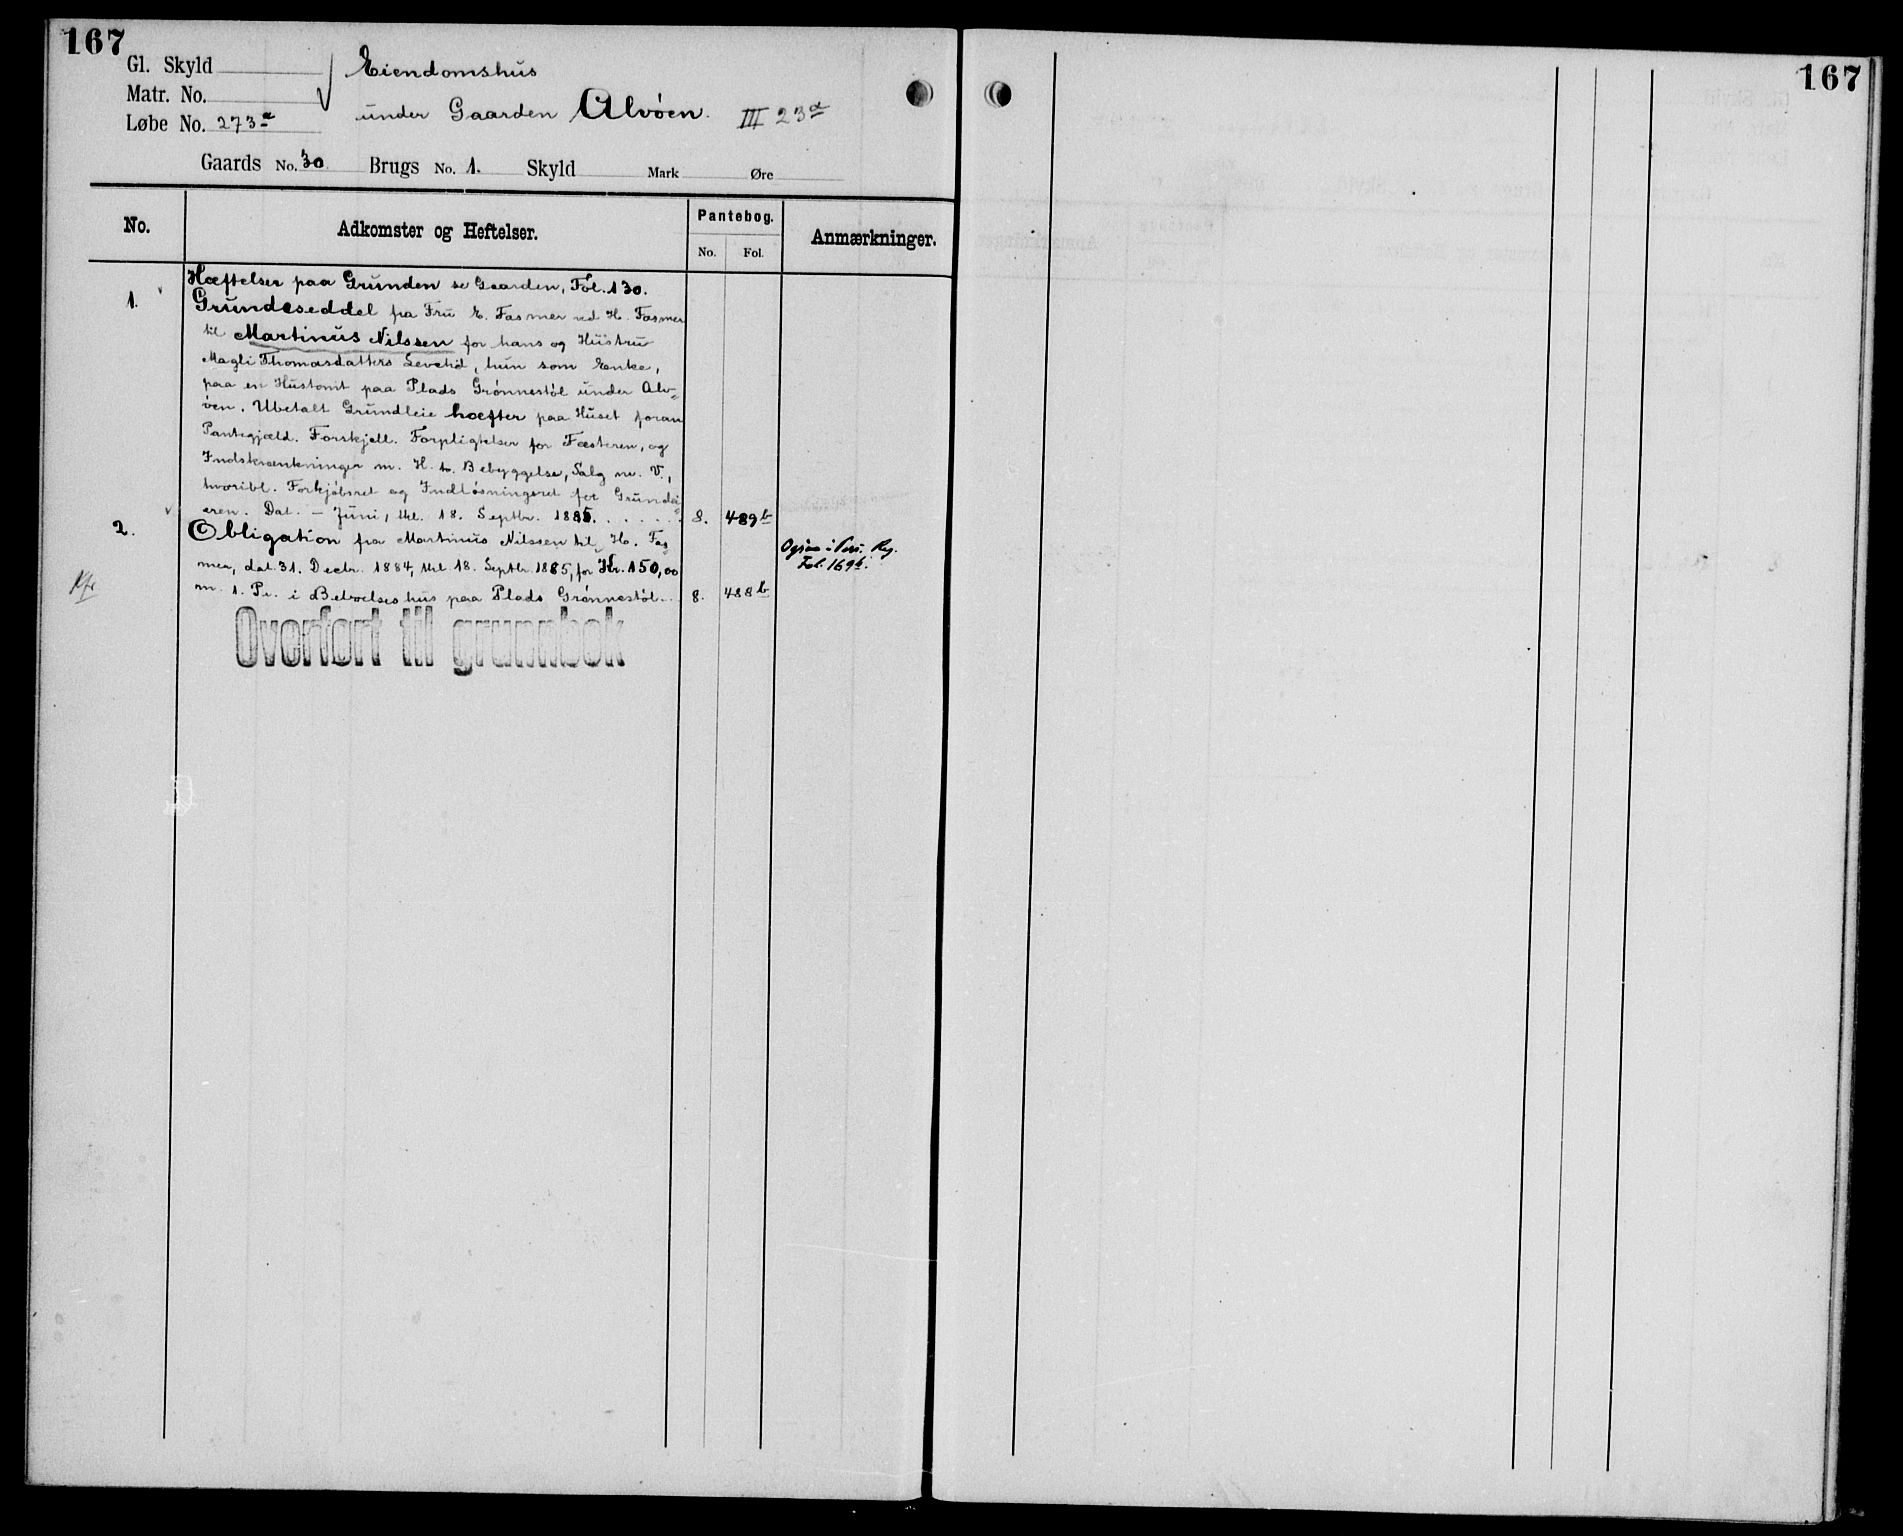 167
167
Gl. Skyld
Eiendomshus
Matr. No.
Løbe No. 273a
under Gaarden Alvøen. III 23a
Gaards No. 30 Brugs No. 1. Skyld Mark Øre
No. Adkomster og Heftelser. Pantebog. Anmærkninger.
No. Fol.
Hæftelser paa Grunden se Gaarden, Fol. 130.
1. Grundeseddel fra Fru E. Fasmer ved H. Fasmer
til Martinus Nilssen for hans og Hustru
Magli Thomasdatters Levetid, hun som Enke,
paa en Hustomt paa Plads Grønnestøl under Alv-
øen. Ubetalt Grundleie hæfter paa Huset foran
Pantegjæld. Forskjell. Forpligtelser for Fæsteren, og
Indskrænkninger m. H. t. Bebyggelse, Salg m. V.,
hvoribl. Forkjøbsret og Indløsningsret for Grundei-
eren. Dat. – Juni, thl. 18. Septbr. 1885. 8. 489b
2. Obligation fra Martinus Nilssen til H. Fas-
mer, dat. 31. Decbr. 1884, thl. 18. Septbr. 1885, for Kr. 150,00
m. 1. Pr. i Beboelseshus paa Plads Grønnestøl. 8. 488b
Ogsaa i Pers. Reg.
Fol. 169b.
Overført til grunnbok